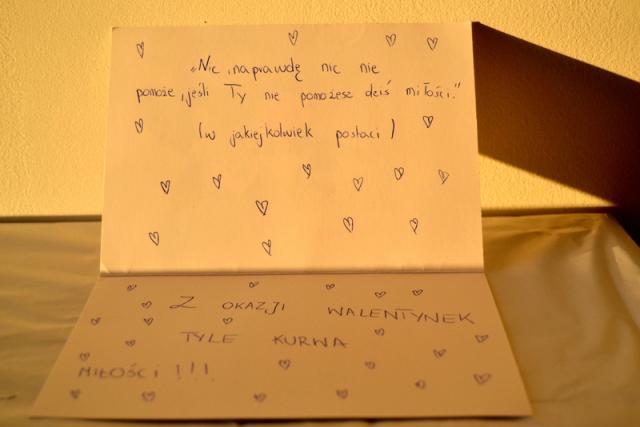 "Nic, naprawdę nic nie
pomoże, jeśli Ty nie pomożesz dziś miłości."
(w jakiejkolwiek postaci)
Z OKAZJI WALENTYNEK
TYLE KURWA
MIŁOŚCI !!!